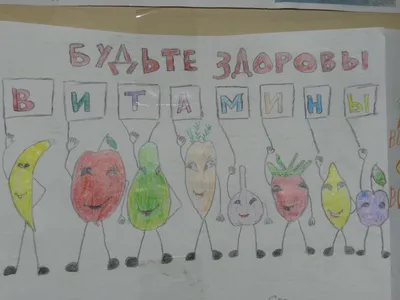 БУДЬТЕ ЗДОРОВЫ
ВИТАМИНЫ